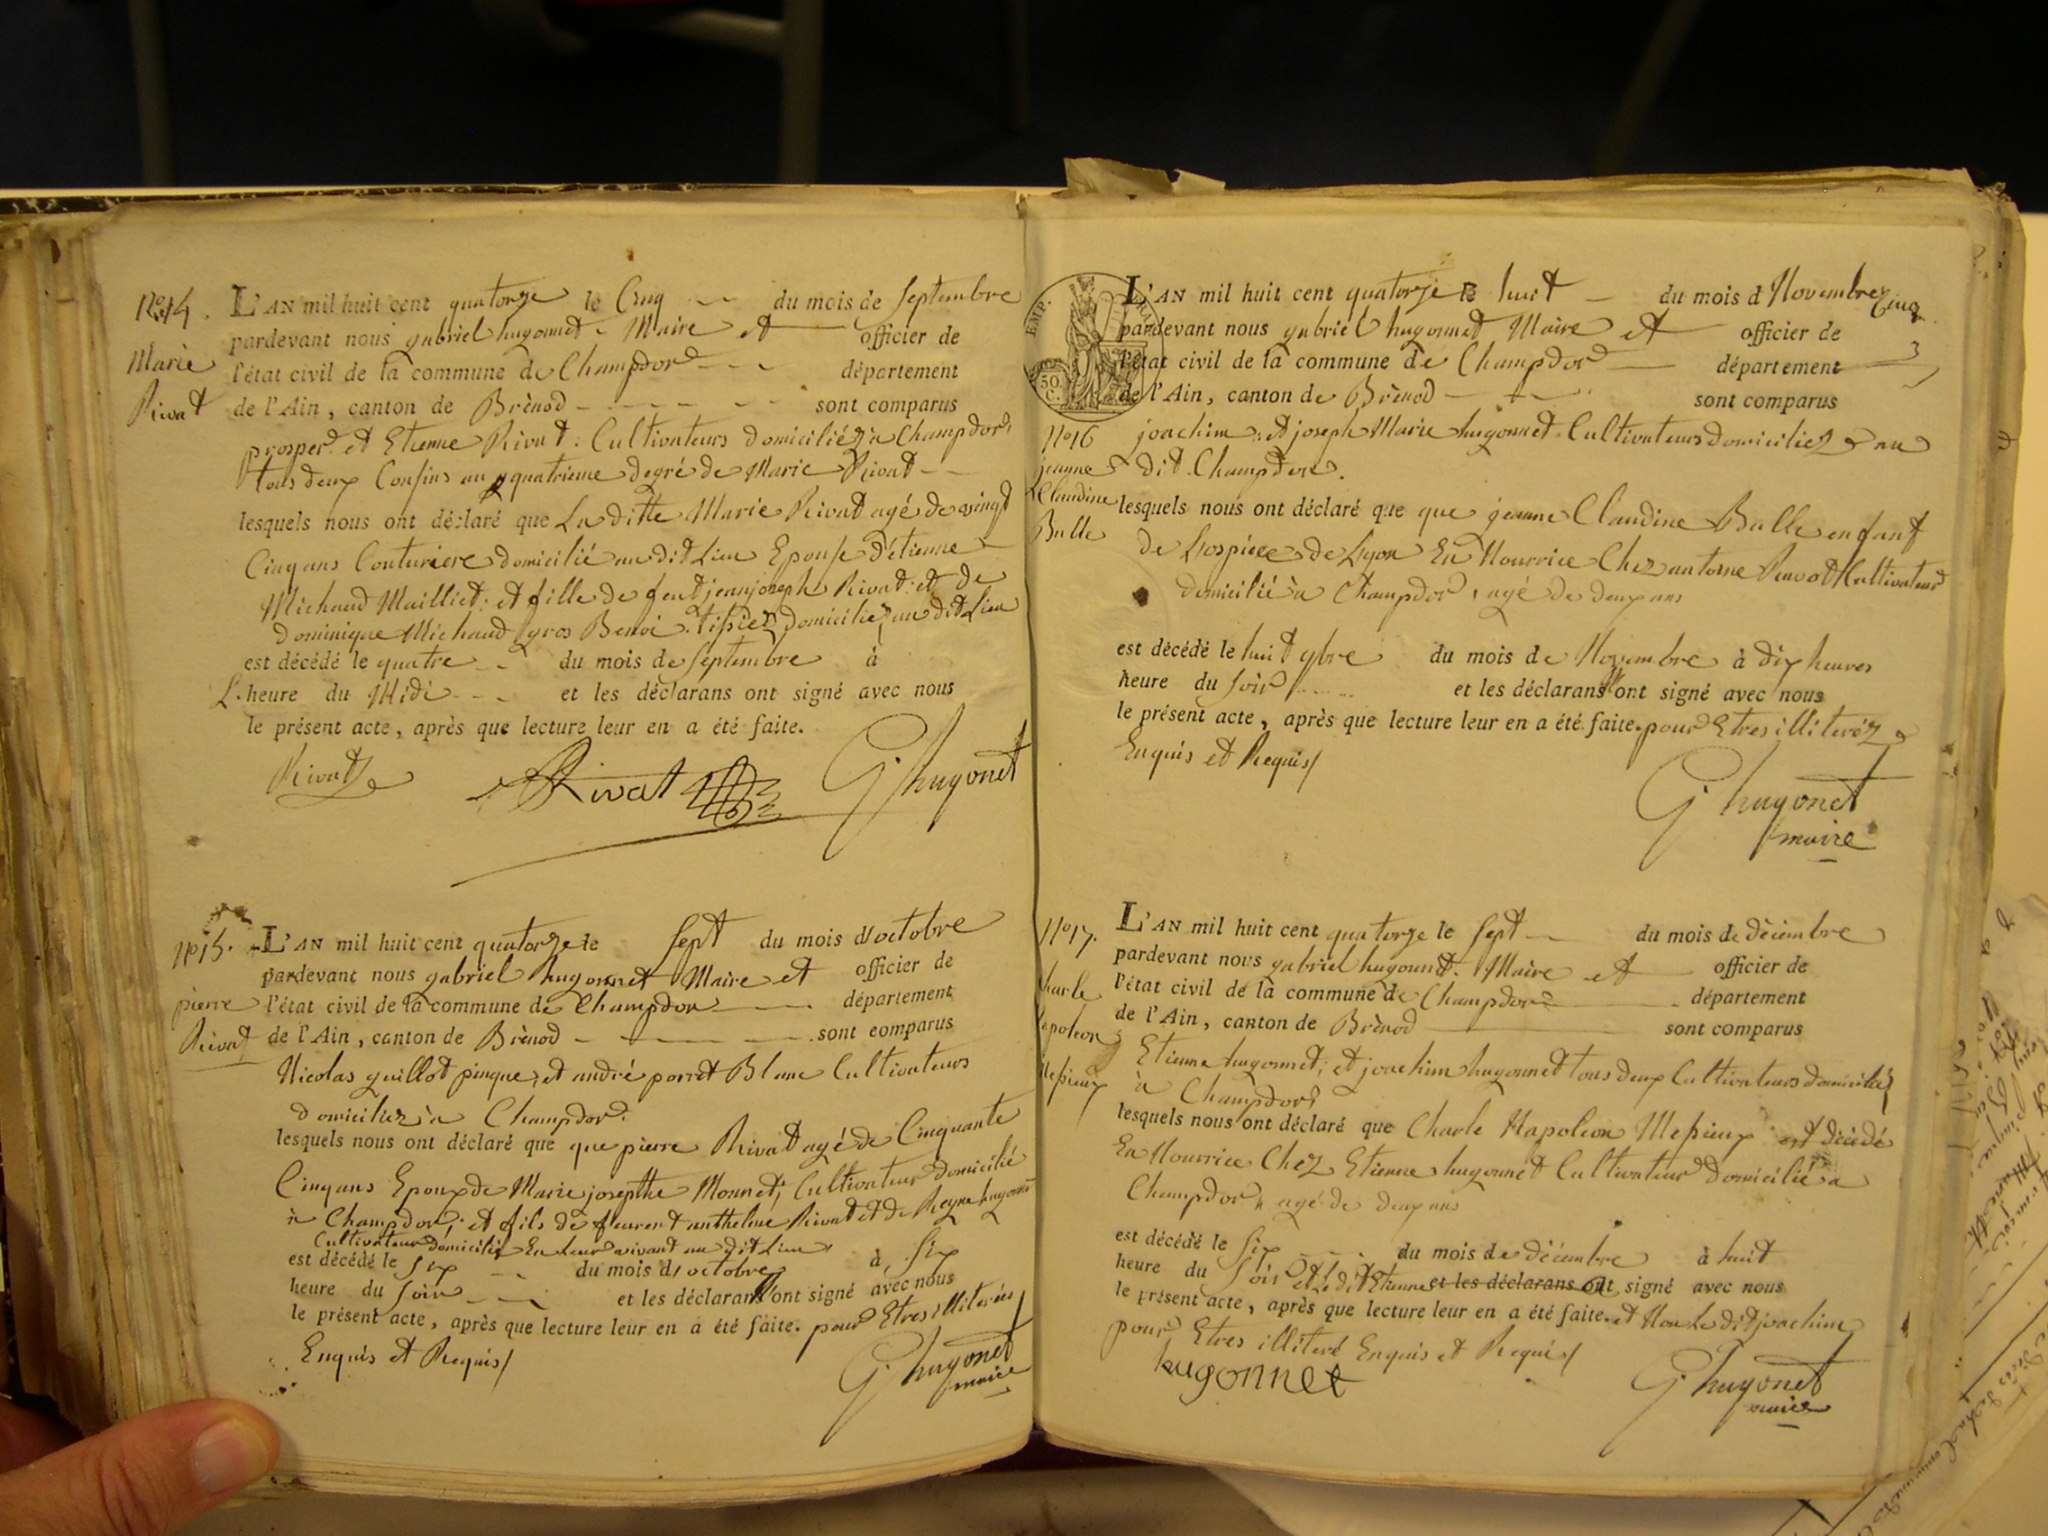 No 14.
Marie
Rivat
L'AN mil huit cent quatorze le Cinq du mois de Septembre
pardevant nous gabriel hugonnet Maire et officier de
l'état civil de la commune de Champdor département
de l'Ain, canton de Brènod sont comparus
prosper et Etienne Rivat. Cultivateurs domiciliéz à Champdor
tous deux Consins au quatrieme degré de Marie Rivat
lesquels nous ont déclaré que La ditte Marie Rivat agé de vingt
Cinq ans Couturiere domicilié au dit Lieu Epouse d'étienne
Michaud Mailliet. et fille de feut jean joseph Rivat. et de
dominique Michaud gros Benoi. domiciliez au dit Lieu
est décédé le quatre du mois de Septembre à
L. heure du Midi et les déclarans ont signé avec nous
le présent acte, après que lecture leur en a été faite.
Rivat
Rivat
G. hugonet
No 15.
pierre
Rivat
L'AN mil huit cent quatorze le Sept du mois d'octobre
pardevant nous gabriel hugonnet Maire et officier de
l'état civil de la commune de Champdor département
de l'Ain, canton de Brènod sont comparus
Nicolas guillot et andré porret Blanc Cultivateurs
domiciliez à Champdor.
lesquels nous ont déclaré que que pierre Rivat agé de Cinquante
Cinq ans Epoux de Marie josepthe Monnet, Cultivateur domicilié
à Champdor, et fils de feurent anthelme Rivat et de Reyne hugonnet
Cultivateur domicilié En Leur vivant au dit Lieu
est décédé le Six du mois d'octobre à Six
heure du Soir et les déclarans ont signé avec nous
le présent acte, après que lecture leur en a été faite. pour Etres illiterés
Enquis et Requis/
G. hugonet
maire
L'AN mil huit cent quatorze le huit du mois d Novembre
pardevant nous gabriel hugonnet Maire et officier de
l'état civil de la commune de Champdor département
de l'Ain, canton de Brènod sont comparus
No 16
jeanne
Claudine
Balle
EMP.
50
C.
joachim. et joseph Marie hugonnet. Cultivateurs domiciliez au
dit. Champdor.
lesquels nous ont déclaré que que jeanne Claudine Balle enfant
de Lospiece de Lyon En Nourrice Chez antoine Ravot Cultivateur
domicilié à Champdor, agé de deux ans
est décédé le huit 9bre du mois de Novembre à dix heures
heure du Soir et les déclarans ont signé avec nous
le présent acte, après que lecture leur en a été faite. pour Etres illiteréz
Enquis et Requis/
G. hugonet
maire
No 17.
Charle
Napoleon
Messieux
L'AN mil huit cent quatorze le Sept du mois de décembre
pardevant nous gabriel hugonnet. Maire et officier de
l'état civil de la commune de Champdor département
de l'Ain, canton de Brènod sont comparus
Etienne hugonnet, et joachim hugonnet tous deux Cultivateurs domiciliéz
à Champdor
lesquels nous ont déclaré que Charle Napoléon Messieux est décédé
En Nourrice Chez Etienne hugonnet Cultivateur domicilié à
Champdor agé de deux ans
est décédé le Six du mois de décembre à huit
heure du Soir et Le dit Etienne et les déclarans ont signé avec nous
le présent acte, après que lecture leur en a été faite. et Non Le dit joachim
pour Etres illiteré Enquis et Requis/
hugonnet
G. hugonet
maire